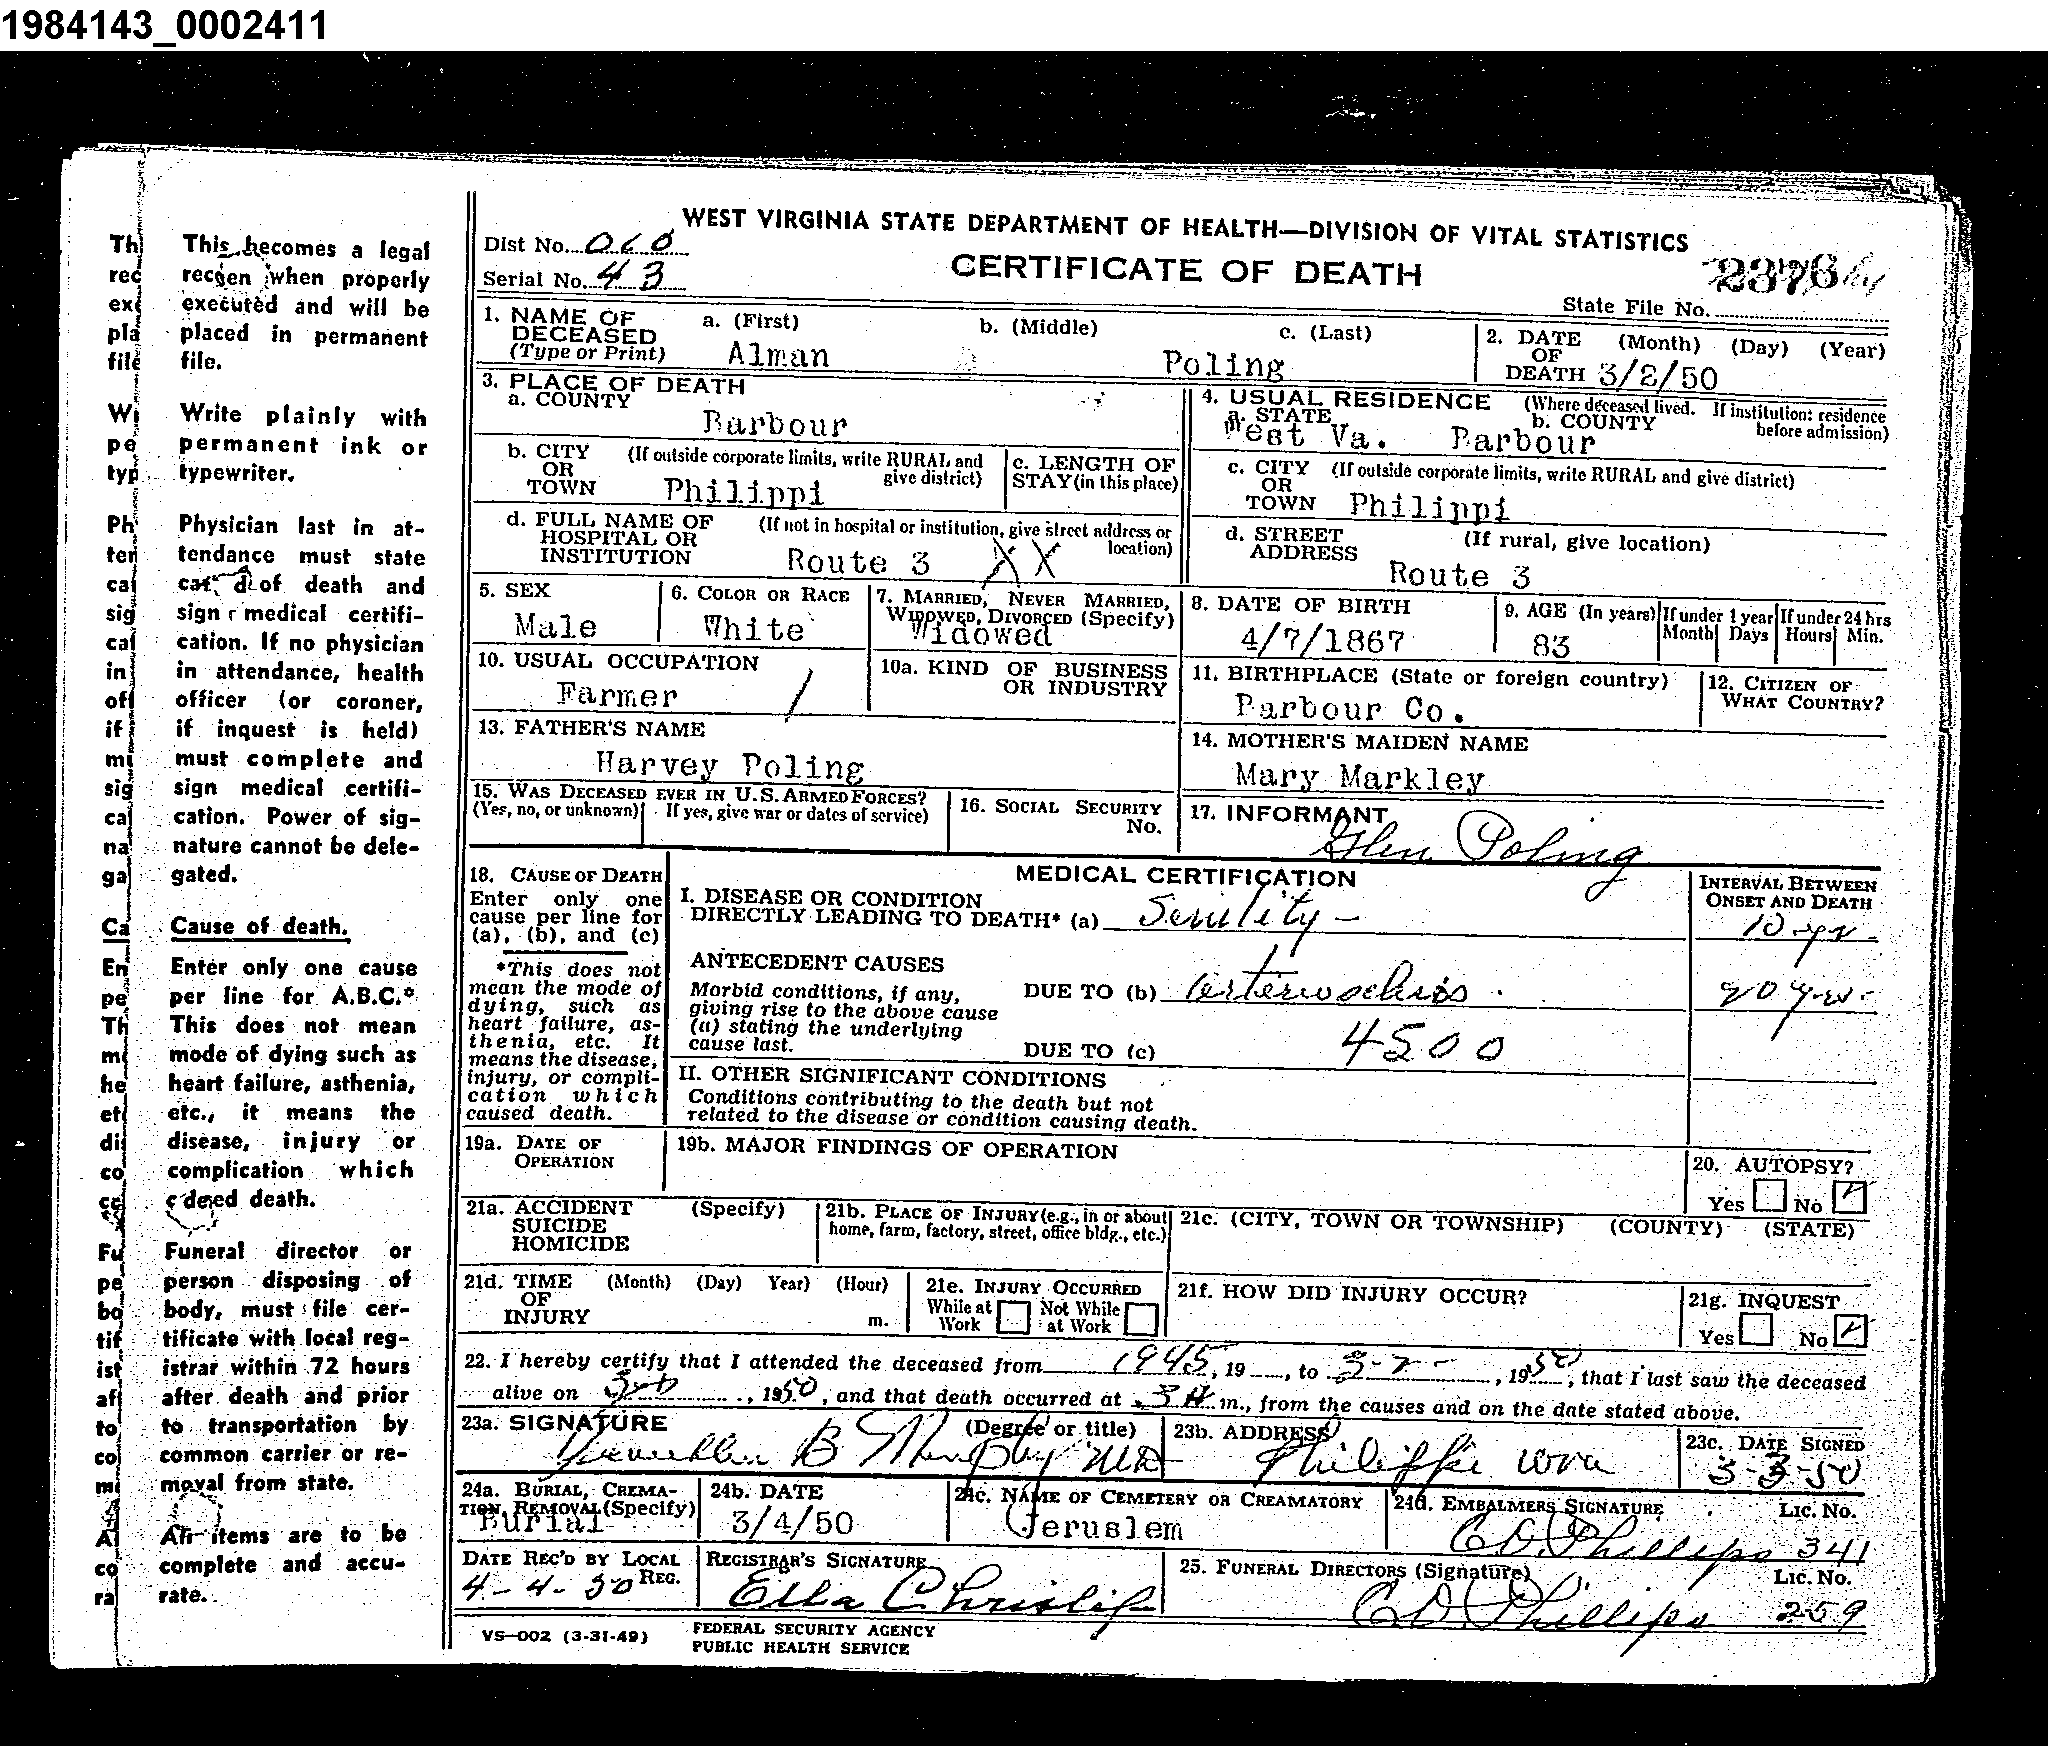 1984143_0002411
WEST VIRGINIA STATE DEPARTMENT OF HEALTH—DIVISION OF VITAL STATISTICS
CERTIFICATE OF DEATH
Dist No. 060
Serial No. 43
State File No. 2376
1. NAME OF DECEASED (Type or Print)
a. (First) b. (Middle) c. (Last)
Alman Poling
2. DATE OF DEATH (Month) (Day) (Year)
3/2/50
3. PLACE OF DEATH
a. COUNTY
Barbour
b. CITY OR TOWN (If outside corporate limits, write RURAL and give district)
Philippi
c. LENGTH OF STAY (in this place)
d. FULL NAME OF HOSPITAL OR INSTITUTION (If not in hospital or institution, give street address or location)
Route 3 XX
4. USUAL RESIDENCE (Where deceased lived. If institution: residence before admission)
a. STATE b. COUNTY
West Va. Barbour
c. CITY OR TOWN (If outside corporate limits, write RURAL and give district)
Philippi
d. STREET ADDRESS (If rural, give location)
Route 3
5. SEX
Male
6. COLOR OR RACE
White
7. MARRIED, NEVER MARRIED, WIDOWED, DIVORCED (Specify)
Widowed
8. DATE OF BIRTH
4/7/1867
9. AGE (In years)
83
If under 1 year
Month Days
If under 24 hrs
Hours Min.
10. USUAL OCCUPATION
Farmer /
10a. KIND OF BUSINESS OR INDUSTRY
11. BIRTHPLACE (State or foreign country)
Barbour Co.
12. CITIZEN OF WHAT COUNTRY?
13. FATHER'S NAME
Harvey Poling
14. MOTHER'S MAIDEN NAME
Mary Markley
15. WAS DECEASED EVER IN U.S. ARMED FORCES?
(Yes, no, or unknown) If yes, give war or dates of service)
16. SOCIAL SECURITY No.
17. INFORMANT
Glen Poling
18. CAUSE OF DEATH
Enter only one
cause per line for
(a), (b), and (c)
*This does not
mean the mode of
dying, such as
heart failure, as-
thenia, etc. It
means the disease,
injury, or compli-
cation which
caused death.
MEDICAL CERTIFICATION
I. DISEASE OR CONDITION
DIRECTLY LEADING TO DEATH* (a) Senility -
ANTECEDENT CAUSES
Morbid conditions, if any,
giving rise to the above cause
(a) stating the underlying
cause last.
DUE TO (b)
DUE TO (c) 4500
INTERVAL BETWEEN ONSET AND DEATH
10 yr
II. OTHER SIGNIFICANT CONDITIONS
Conditions contributing to the death but not
related to the disease or condition causing death.
19a. DATE OF OPERATION
19b. MAJOR FINDINGS OF OPERATION
20. AUTOPSY?
Yes No
21a. ACCIDENT SUICIDE HOMICIDE (Specify)
21b. PLACE OF INJURY (e.g., in or about
home, farm, factory, street, office bldg., etc.)
21c. (CITY, TOWN OR TOWNSHIP) (COUNTY) (STATE)
21d. TIME OF INJURY (Month) (Day) Year) (Hour) m.
21e. INJURY OCCURRED
While at Work Not While at Work
21f. HOW DID INJURY OCCUR?
21g. INQUEST
Yes No
22. I hereby certify that I attended the deceased from 1945, 19 , to 3-2-, 1950, that I last saw the deceased
alive on , 1950, and that death occurred at m., from the causes and on the date stated above.
23a. SIGNATURE (Degree or title)
B Murphy MD
23b. ADDRESS
Philippi WVa
23c. DATE SIGNED
3-3-50
24a. BURIAL, CREMATION, REMOVAL (Specify)
Burial
24b. DATE
3/4/50
24c. NAME OF CEMETERY OR CREAMATORY
Jeruslem
24d. EMBALMERS SIGNATURE Lic. No.
C D. Phillips 341
DATE REC'D BY LOCAL REG.
4-4-50
REGISTRAR'S SIGNATURE
Ella Christlip
25. FUNERAL DIRECTORS (Signature) Lic. No.
C D Phillips 259
VS-002 (3-31-49)
FEDERAL SECURITY AGENCY
PUBLIC HEALTH SERVICE
This becomes a legal
when properly
executed and will be
placed in permanent
file.
Write plainly with
permanent ink or
typewriter.
Physician last in at-
tendance must state
of death and
sign medical certifi-
cation. If no physician
in attendance, health
officer (or coroner,
if inquest is held)
must complete and
sign medical certifi-
cation. Power of sig-
nature cannot be dele-
gated.
Cause of death.
Enter only one cause
per line for A.B.C.*
This does not mean
mode of dying such as
heart failure, asthenia,
etc., it means the
disease, injury or
complication which
death.
Funeral director or
person disposing of
body, must file cer-
tificate with local reg-
istrar within 72 hours
after death and prior
to transportation by
common carrier or re-
moval from state.
All items are to be
complete and accu-
rate.